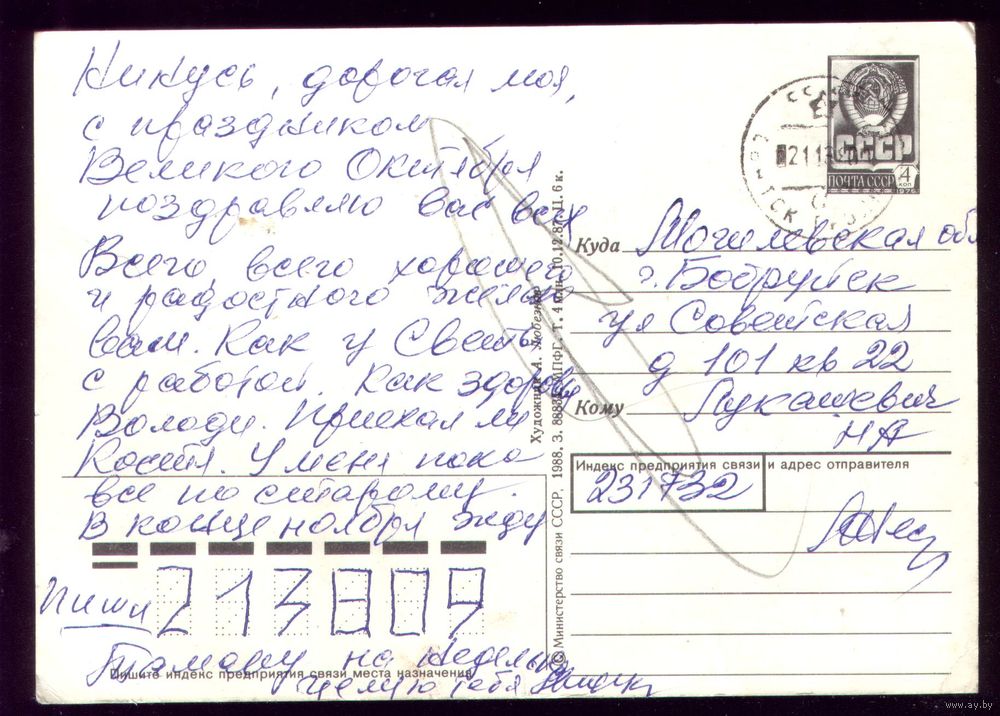 Никусь, дорогая моя,
с праздником
Великого Октября
поздравляю вас всех
Всего, всего хорошего
и радостного желаю
вам. Как у Светы
с работой. Как здоровье
Володи. Приехал ли
Костя. У меня пока
все по старому.
В конце ноября жду
Тамару на недельку
целую тебя
Пиши
213809
Пишите индекс предприятия связи места назначения
© Министерство связи СССР. 1988. З. 88836. МПФГ. Т. 4 млн. 10.12.87. Ц. 6 к.
Художник А. Любезнов
СССР
ПОЧТА СССР
4 КОП
1976
Куда Могилевская обл
г. Бобруйск
ул Советская
д 101 кв 22
Кому Лукашевич
НА
Индекс предприятия связи и адрес отправителя
231732
www.ay.by